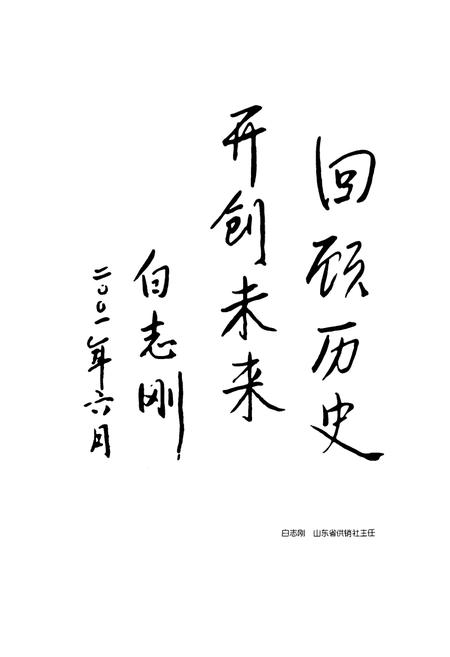 回顾历史
开创未来
白志刚
二〇〇一年六月
白志刚　山东省供销社主任